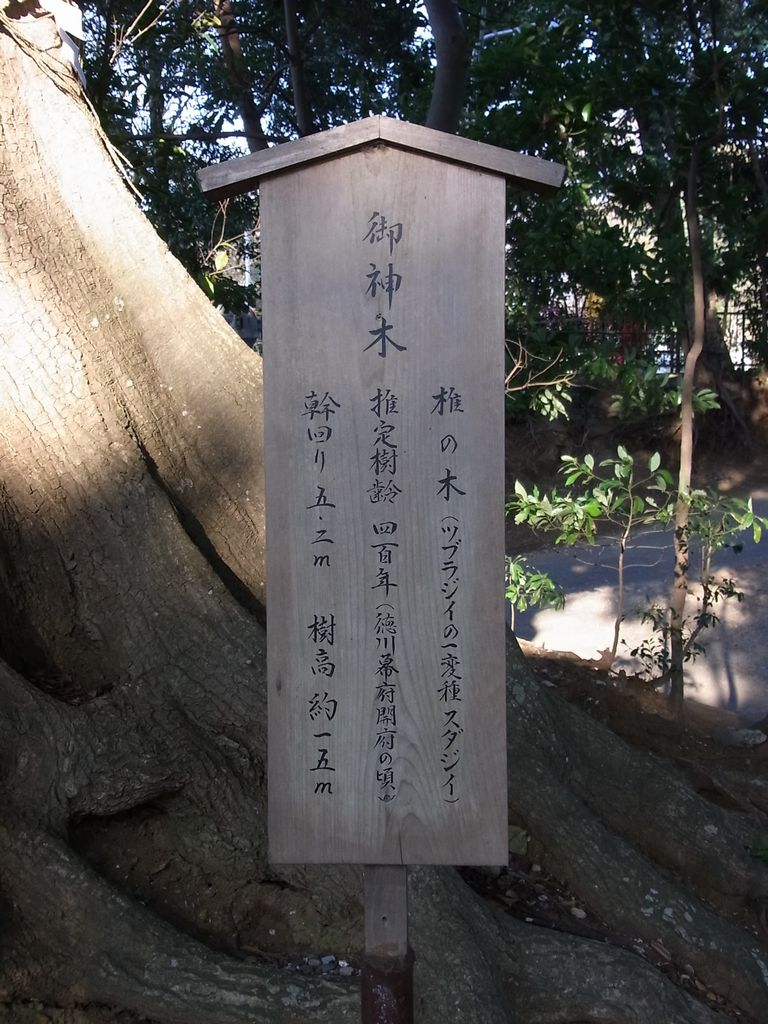 御神木
椎の木(ツブラジイの一変種 スダジイ)
推定樹齢 四百年(徳川幕府開府の頃)
幹回り 五.二m 樹高 約一五m